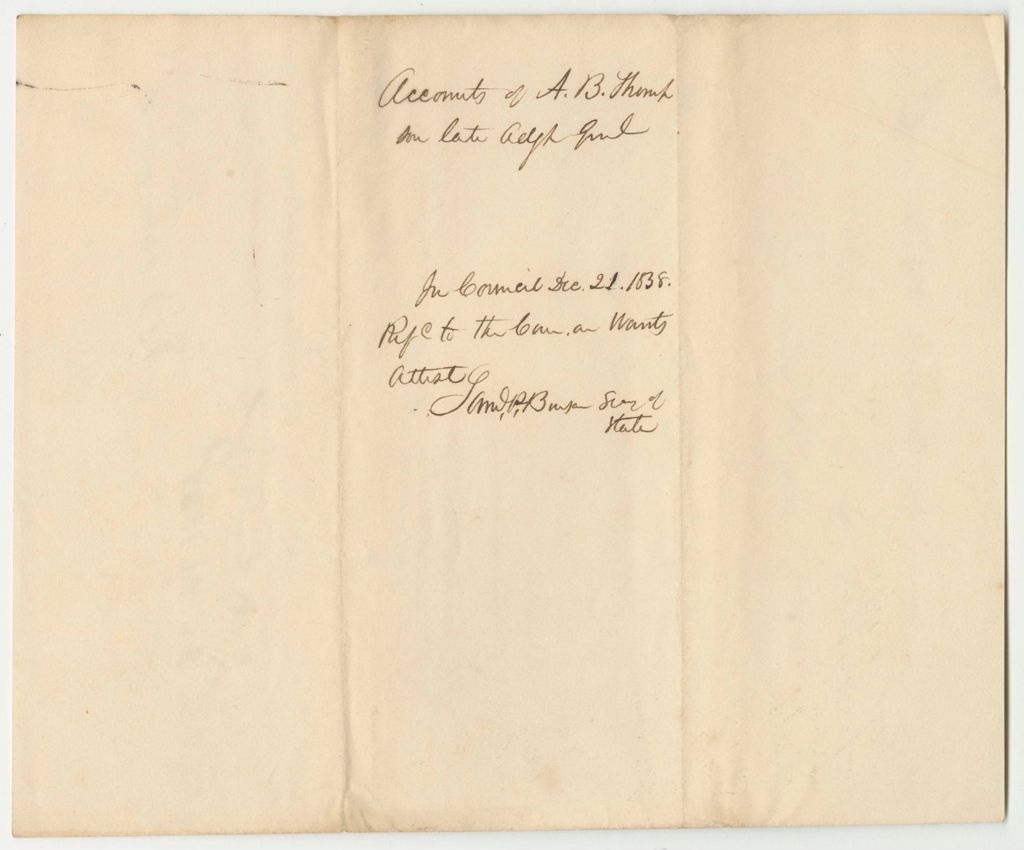 Accounts of A. B. Thomp
son late Adjt Genl
In Council Dec. 21. 1838.
Refd to the Com. on Warrants
Attest
Saml. P. Benson Secy of
State